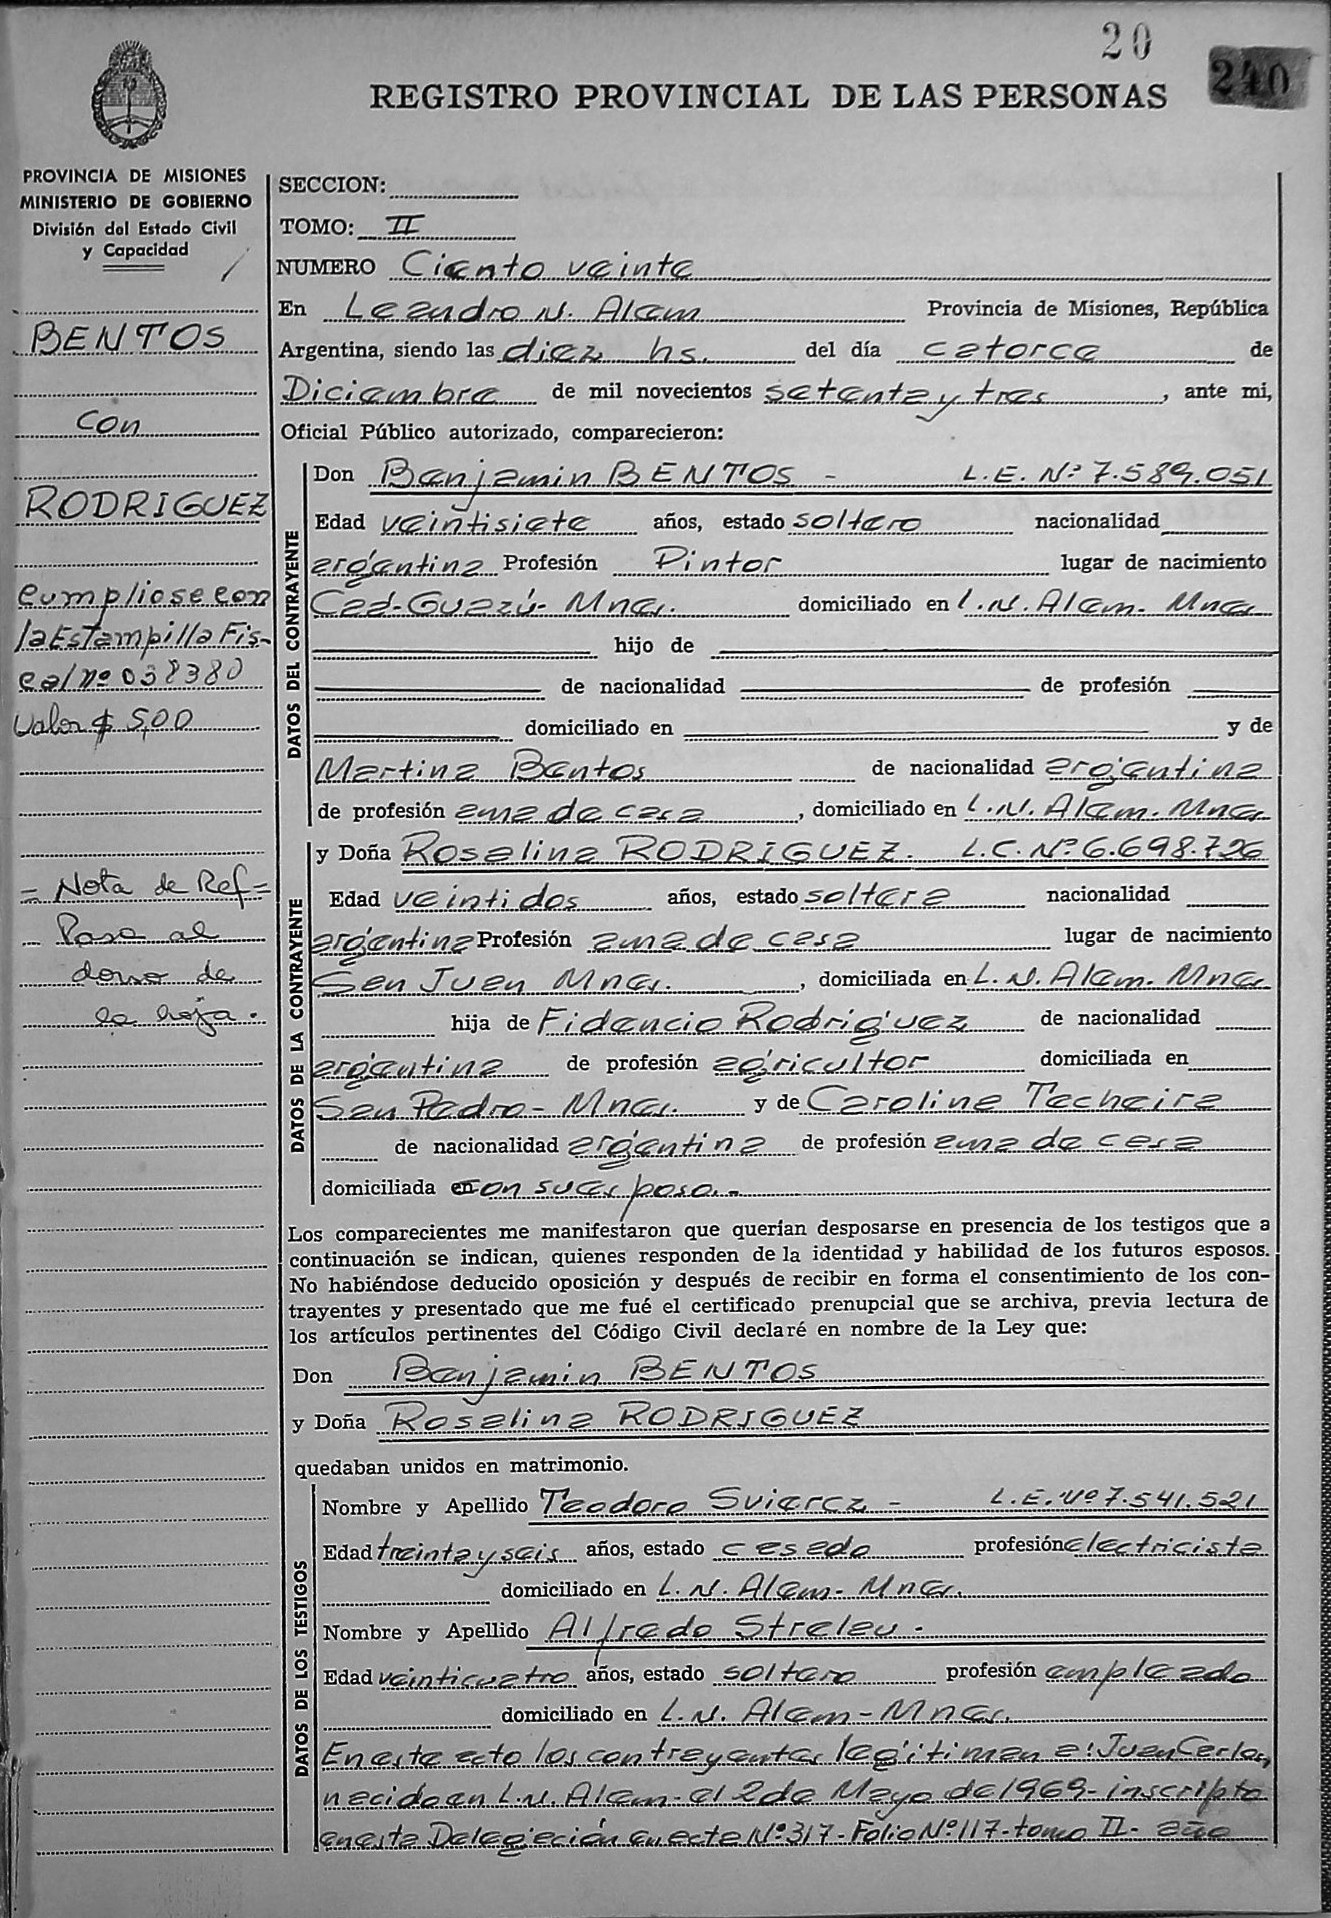 20
240
REGISTRO PROVINCIAL DE LAS PERSONAS
PROVINCIA DE MISIONES
MINISTERIO DE GOBIERNO
División del Estado Civil
y Capacidad
BENTOS
con
RODRIGUEZ
Cumpliose con
la Estampilla Fis-
cal nº 038380
Valor $ 5,00
= Nota de Ref =
Pasa al
dorso de
la hoja.
SECCION:
TOMO: II
NUMERO Ciento veinte
En Leandro N. Alem Provincia de Misiones, República
Argentina, siendo las diez hs. del día catorce de
Diciembre de mil novecientos setenta y tres, ante mi,
Oficial Público autorizado, comparecieron:
DATOS DEL CONTRAYENTE
Don Benjamin BENTOS - L.E. Nº 7.589.051
Edad veintisiete años, estado soltero nacionalidad
argentina Profesión Pintor lugar de nacimiento
Cad-Guazú- Mnes. domiciliado en L.N. Alem- Mnes
hijo de
de nacionalidad de profesión
domiciliado en y de
Martina Bentos de nacionalidad argentina
de profesión ama de casa, domiciliado en L.N. Alem. Mnes
DATOS DE LA CONTRAYENTE
y Doña Roselina RODRIGUEZ. L.C. Nº 6.698.726
Edad veintidos años, estado soltera nacionalidad
argentina Profesión ama de casa lugar de nacimiento
San Juan Mnes. , domiciliada en L.N. Alem- Mnes
hija de Fidencio Rodriguez de nacionalidad
argentina de profesión agricultor domiciliada en
San Pedro- Mnes. y de Carolina Techeira
de nacionalidad argentina de profesión ama de casa
domiciliada en con su esposo.-
Los comparecientes me manifestaron que querían desposarse en presencia de los testigos que a
continuación se indican, quienes responden de la identidad y habilidad de los futuros esposos.
No habiéndose deducido oposición y después de recibir en forma el consentimiento de los con-
trayentes y presentado que me fué el certificado prenupcial que se archiva, previa lectura de
los artículos pertinentes del Código Civil declaré en nombre de la Ley que:
Don Benjamin BENTOS
y Doña Roselina RODRIGUEZ
quedaban unidos en matrimonio.
DATOS DE LOS TESTIGOS
Nombre y Apellido Teodoro Svierez - L.E. Nº 7.541.521
Edad treinta y seis años, estado casado profesión electricista
domiciliado en L.N. Alem- Mnes.
Nombre y Apellido Alfredo Streleu.
Edad veinticuatro años, estado soltero profesión empleado
domiciliado en L.N. Alem- Mnes.
En este acto los contrayentes legitiman a: Juan Carlos,
nacido en L.N. Alem- el 2 de Mayo de 1969- inscripto
en esta Delegación en acta Nº 317- Folio Nº 117- tomo II- año